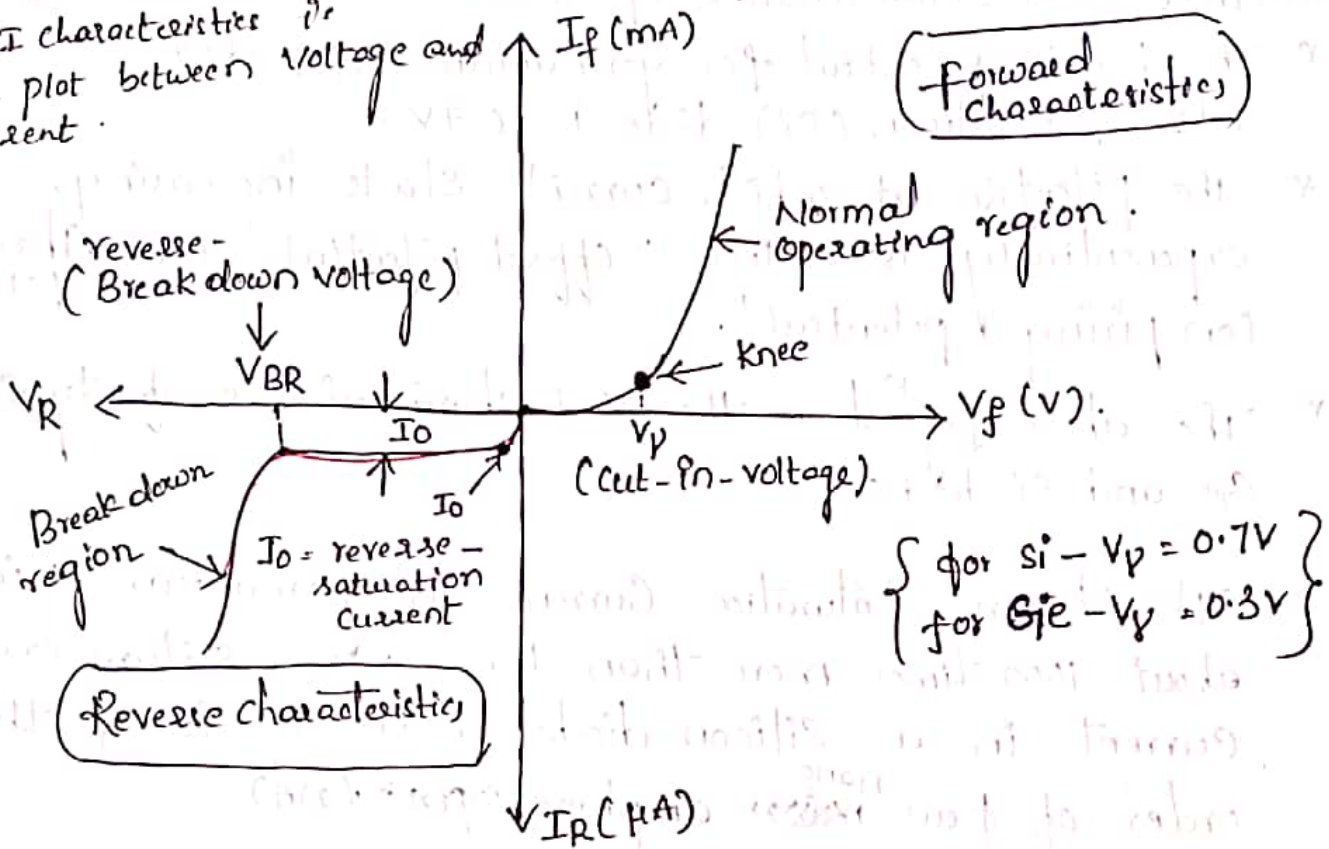 I characteristics is
plot between voltage and
rent.
If (mA)
Forward
characteristics
Normal
operating region.
reverse-
(Breakdown voltage)
VBR
Knee
VR
Vf (V).
Io
Vγ
(cut-in-voltage).
Io
Breakdown
region
Io = reverse-
satuation
current
{ for si - Vγ = 0.7V }
{ for Ge - Vγ = 0.3V }
Reverse characteristics
IR (μA)